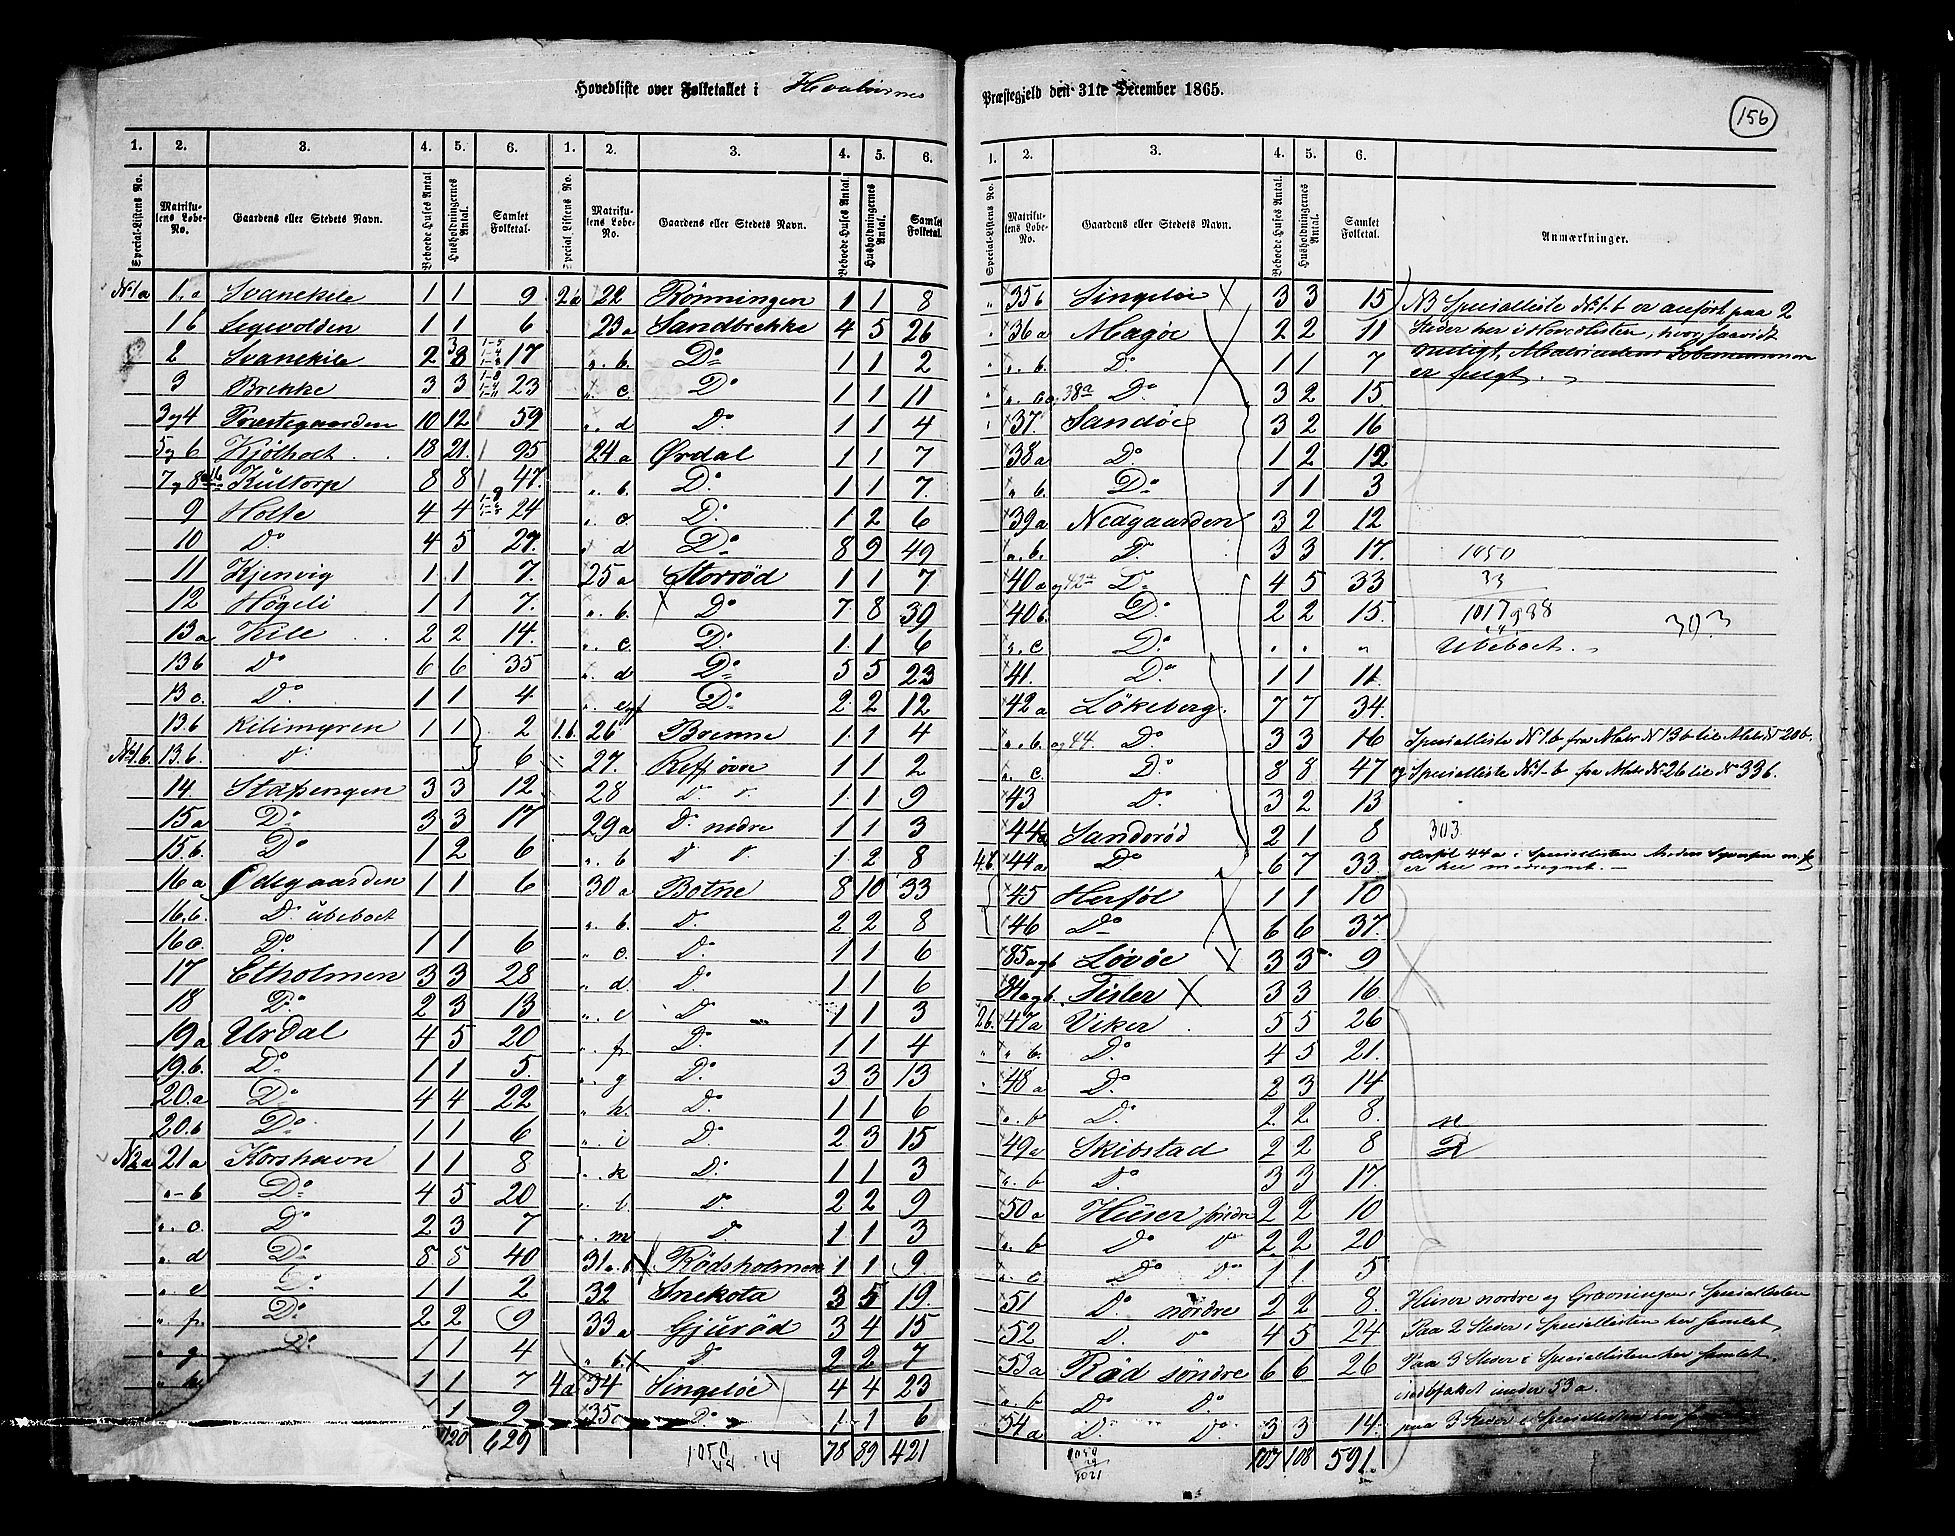 Hovedliste over Folketallet i Hvalørnes Præstegjeld den 31te December 1865.
156
1. 2. 3. 4. 5. 6. 1. 2. 3. 4. 5. 6.
Special-Listens No. Matrikulens Løbe-No. Gaardens eller Stedets Navn. Beboede Huses Antal Husholdningernes Antal. Samlet Folketal. Special-Listens No. Matrikulens Løbe-No. Gaardens eller Stedets Navn. Beboede Huses Antal. Husholdningernes Antal. Samlet Folketal.
No 1a 1.a Svanekile 1 1 9
1 b Legevolden 1 1 6
2 Svanekile 2 3 17
3 Brekke 3 3 23
3 og 4 Præstegaarden 10 12 59
5 og 6 Kjølholt 18 21 95
7 og 8 Kultorp 8 8 47
9 Holte 4 4 24
10 Do 4 5 27
11 Kjenvig 1 1 7
12 Høgeli 1 1 7
13a Kile 2 2 14
13b Do 6 6 35
13c Do 1 1 4
13.b Kilimyren 1 1 2
No 1.b. 13.b. Do 6
14 Stafsengen 3 3 12
15a Do 3 3 17
15.b. Do 1 2 6
16a Ødegaarden 1 1 6
16.b. Do ubeboet
16c. Do 1 1 6
17 Etholmen 3 3 28
18 Do 2 3 13
19a Urdal 4 5 20
19.b. Do 1 1 5
20.a Do 4 4 22
20.b Do 1 1 6
No 2a 21a Korshavn 1 1 8
" b Do 4 5 20
" c. Do 2 3 7
" d Do 8 5 40
" e Do 1 1 2
" f Do 2 2 9
" g Do 1 1 4
" h 1 1 7
1 2
120 629
2a 22 Rönningen 1 1 8
23a Sandbrekke 4 5 26
" b. Do 1 1 2
" c. Do 1 1 11
" d Do 1 1 4
24a Ørdal 1 1 7
" b. Do 1 1 7
" c Do 1 2 6
" d Do 8 9 49
25a Storröd 1 1 7
" b. Do 7 8 39
" c Do 1 1 6
" d Do 5 5 23
" e og f Do 2 2 12
1.b. 26 Brenne 1 1 4
27. Reff øvre 1 1 2
28 Do Do 1 1 9
29a Do nedre 1 1 3
" b Do Do 1 2 8
30a Botne 8 10 33
" b. Do 2 2 8
" c Do 1 1 6
" d. Do 1 1 6
" e Do 1 1 3
" f. Do 1 1 4
" g Do 3 3 13
" h. Do 1 1 6
" i Do 2 3 15
" k Do 1 1 3
" l Do 2 2 9
" m Do 1 1 3
31a. Rødsholmen 1 1 9
32 Snekota 3 5 19
33a Gjuröd 3 4 15
" b. Do 2 2 7
4a 34 Singelöe 4 4 23
35a Do 1 1 6
1050 14 78 89 421
1. 2. 3. 4. 5. 6.
Special-Listens No. Matrikulens Løbe-No. Gaardens eller Stedets Navn. Beboede Huses Antal. Husholdningernes Antal. Samlet Folketal. Anmærkninger.
" 35b Singelöe 3 3 15 NB Specialliste No 1.b er anført paa 2
" 36a Asmaløe 2 2 11 Steder her i Hovedlisten, hvor saavidt
" b. Do 1 1 7 muligt, Matriculens Løbenummere
" og 38a Do 3 2 15 er fulgt.
37. Sandöe 3 2 16
38a Do 1 2 12
" b. Do 1 1 3
39a Nedgaarden 3 2 12
" b. Do 3 3 17 1050
40a og 42a Do 4 5 33 33
40b. Do 2 2 15 1017 303
" c Do " " " Ubeboet.
41. Do 1 1 11
42a Lökeberg 7 7 34
" b. og 44. Do 3 3 16 Specialliste No 1b fra Matr No 13b til Matr No 20b.
" c. Do 8 8 47 og Specialliste No 1-b fra Matr No 26 til No 33b.
43 Do 3 2 13
44a Sanderöd 2 1 8 303
4.b. 44a Do 6 7 33 Herföl 44a i Speciallisten
er her medregnet.
45 Herföl 1 1 10
46 Do 6 6 37
85 a og b Lövöe 3 3 9
84 a og b. Tisler 3 3 16
2b. 47a Viker 5 5 26
" b. Do 4 5 21
48a Do 2 3 14
" b Do 2 2 8
49a Skibstad 2 2 8
" b Do 3 3 17
50a Huser søndre 2 2 10
" b Do Do 2 2 20
" c Do Do 1 1 5
51 Do nördre 2 2 8 Huser nordre og Gravningen i Speciallisten
52 Do Do 4 5 24 Paa 2 Steder i Speciallisten her samlet
53a Röd söndre 6 6 26 Paa 3 Steder i Speciallisten her samlet.
" b Do Do indbefattet under 53a.
54a Do Do 3 3 14 paa 3 Steder i Speciallisten her samlet
1050 1021 107 108 591